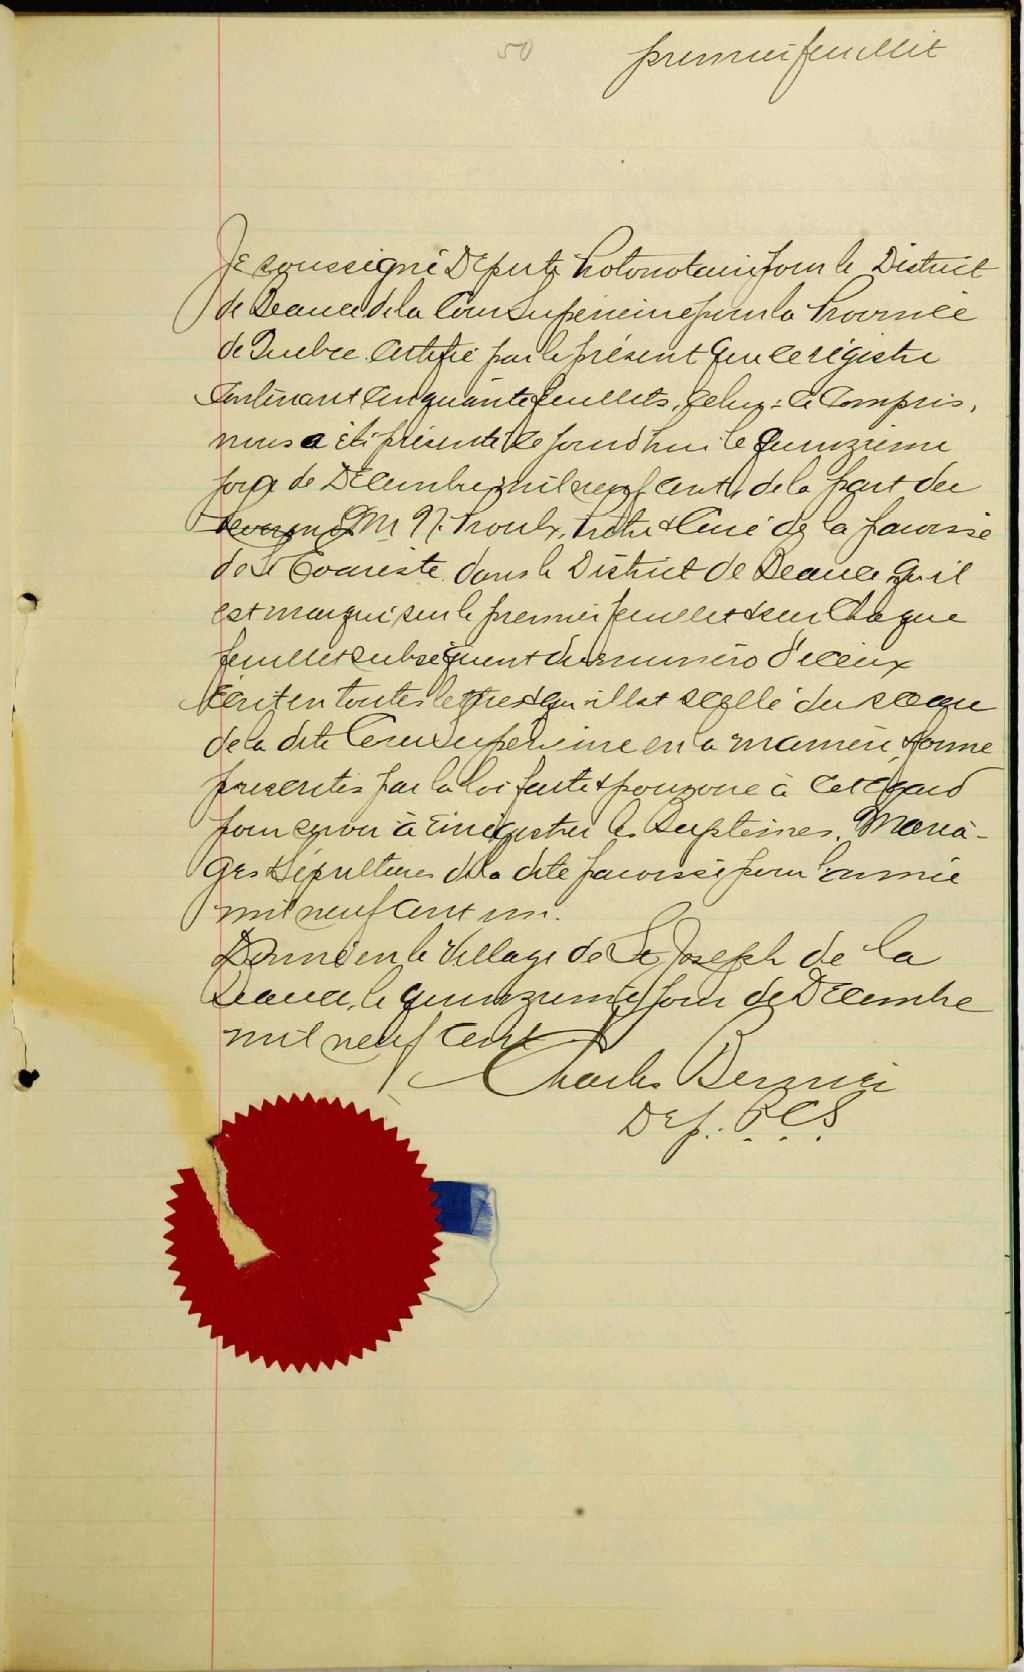 50
premier feuillet
Je soussigné Député Protonotaire pour le District
de Beauce de la Cour Supérieure pour la Province
de Quebec certifie par le présent que ce régistre
Contenant Cinquante feuillets, celui-ci Compris,
nous a été présenté ce jourd'hui le quinzieme
jour de Décembre mil neuf cent, de la part du
Reverend M N. Proulx, Prêtre & Curé de la paroisse
de St Evariste dans le District de Beauce qu'il
est marqué sur le premier feuillet & sur chaque
feuillet subséquent du numéro d'iceux
écrit en toutes lettres & qu'il est scellé du sceau
de la dite Cour Supérieure en la manière & forme
prescrites par la loi faite & pourvue à cet égard
pour servir à Enregistrer les Baptêmes, Maria-
ges & Sépultures de la dite paroisse pour l'année
mil neuf cent un.
Donné en le village de St Joseph de la
Beauce, le quinzieme jour de Décembre
mil neuf cent
Charles Bernier
Dep. P.C.S.